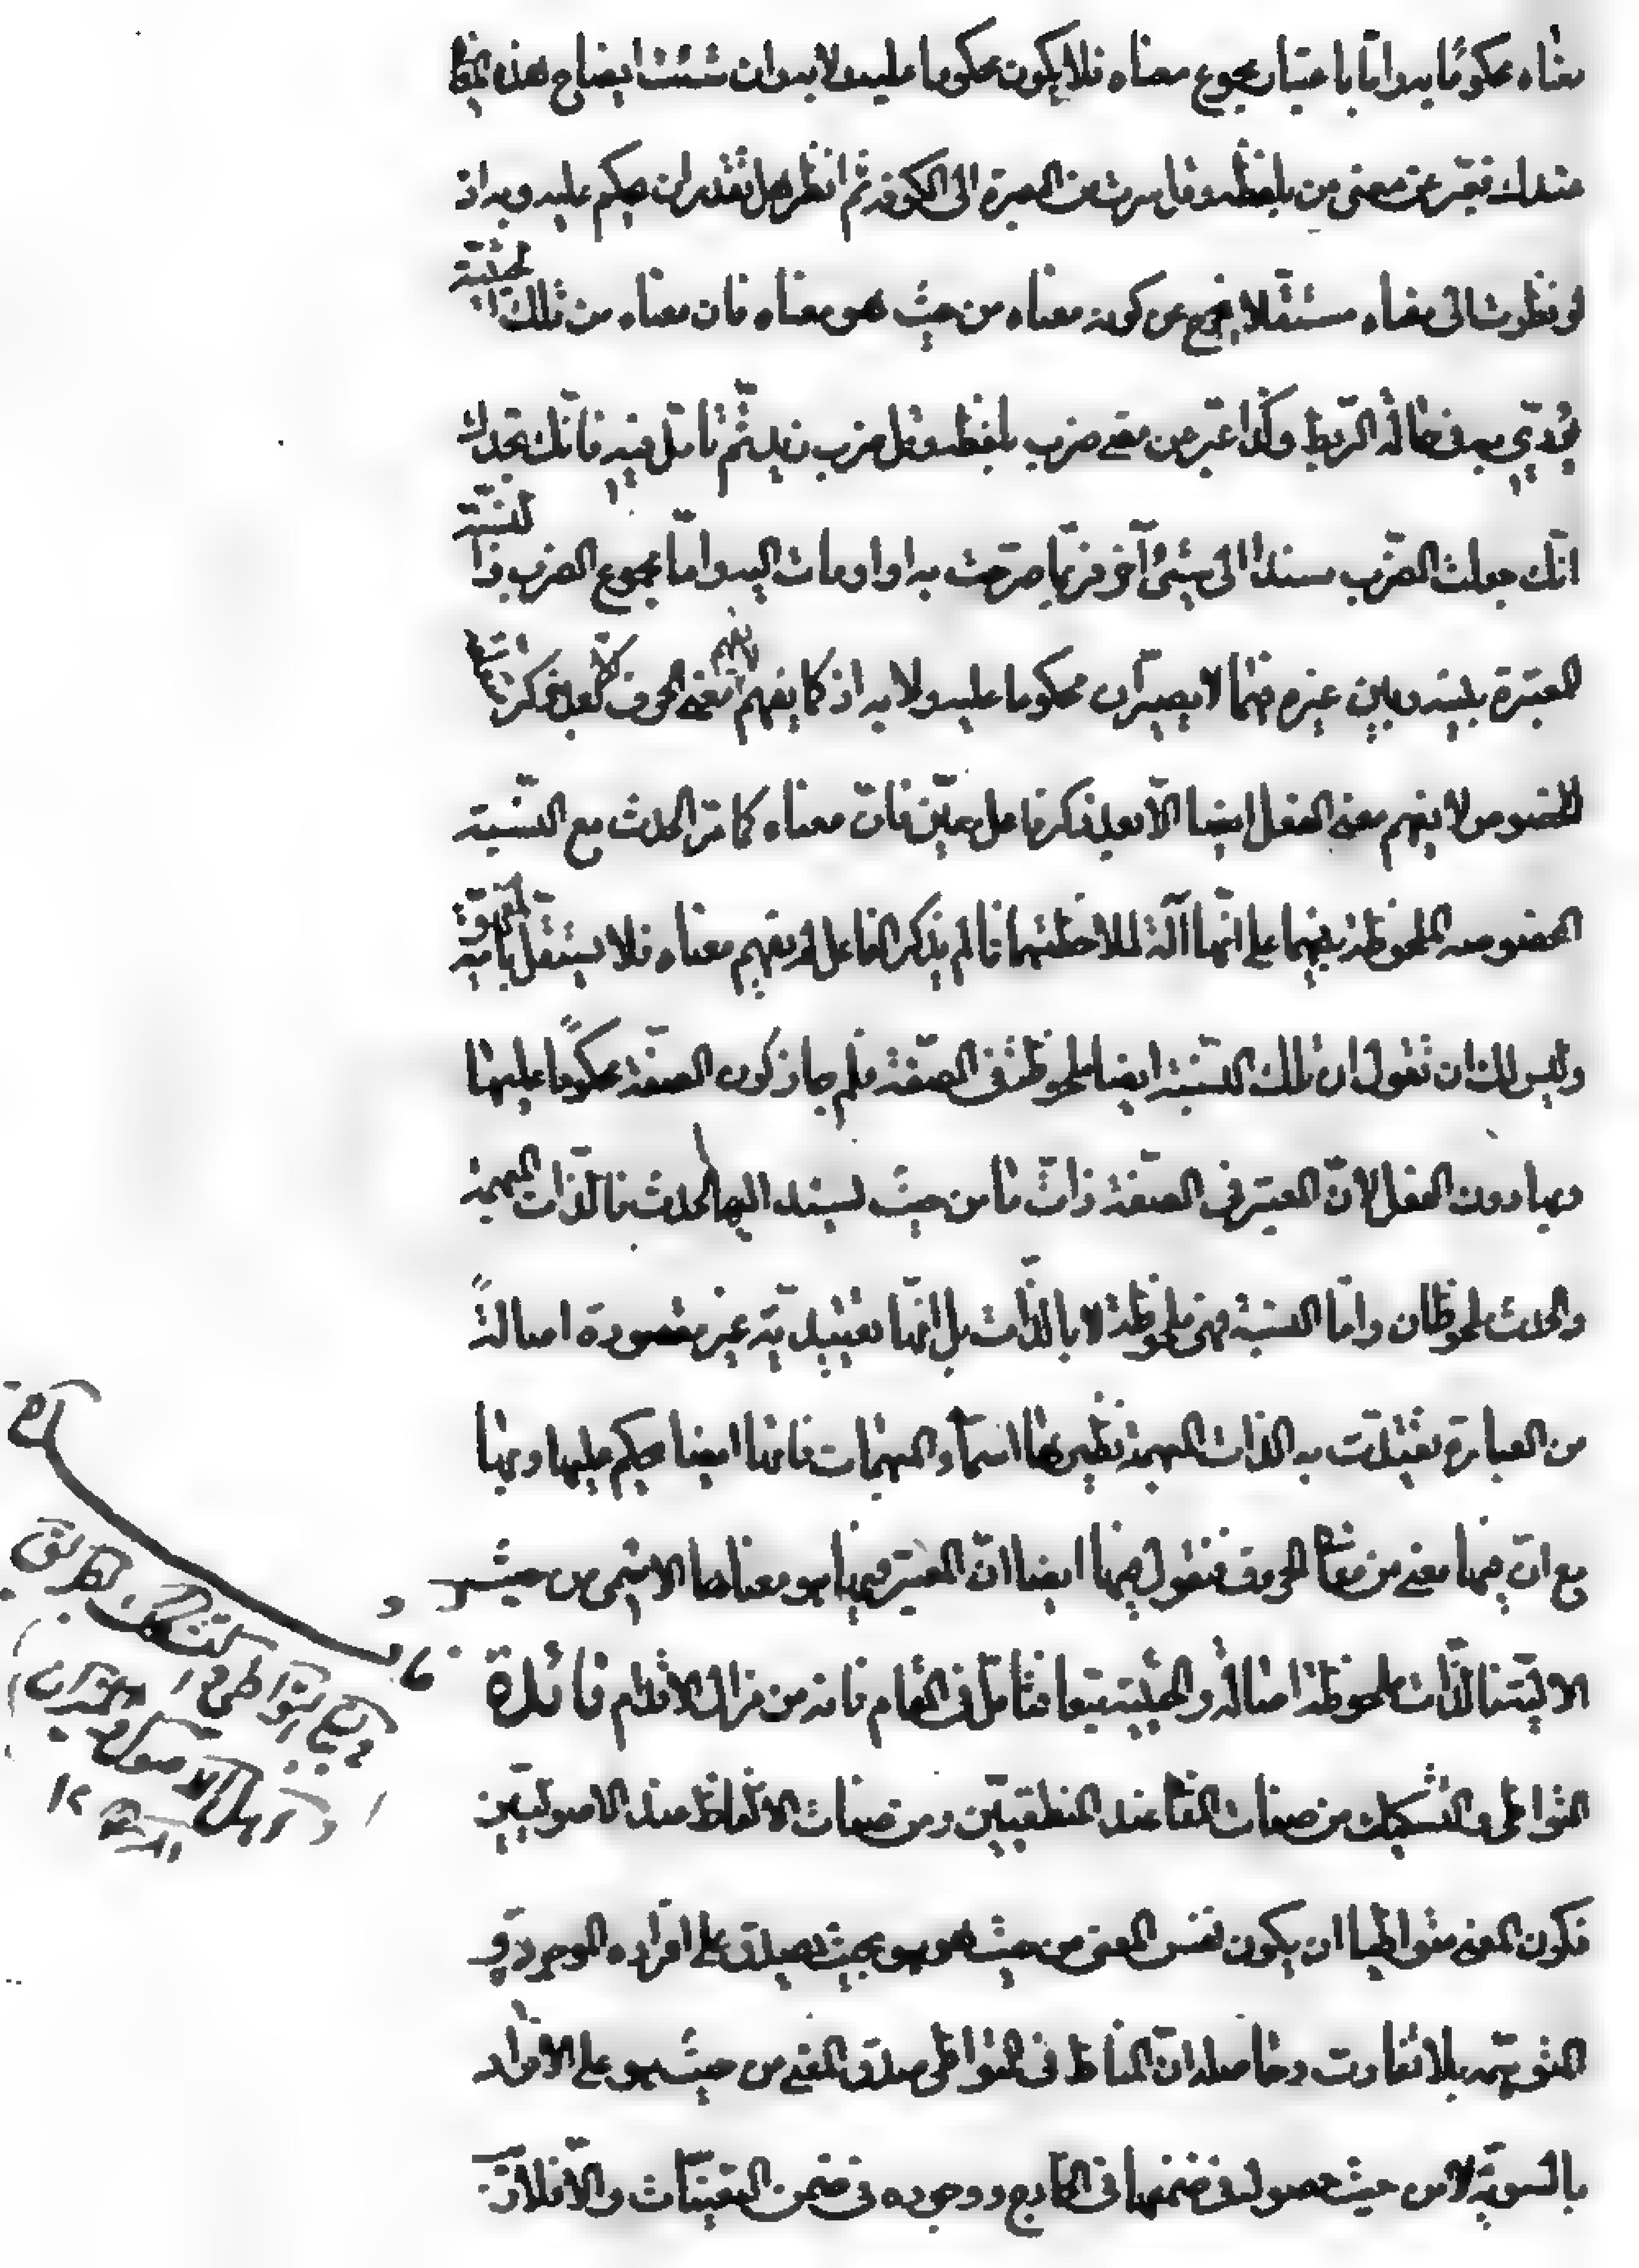 معناه محكومًا به واما باعتبار مجموع معناه فلا يكون محكوما عليه ولا به وان شئت ايضاح هذه
عندك فعبّر عن معنى من بلفظه وقل سرت من البصرة الى الكوفة ثم انظر هل تقدر ان تحكم عليه وبه اذ
لو نظرت الى معناه مستقلا يخرج عن كونه معناه من حيث هو معناه فان معناه من تلك الحيثية
يؤدّي به في حالة الربط وكذا عبّر عن معنى ضرب بلفظه وقل ضرب زيد ثم تامّل فيه فانّك تجدك
انّك جعلت الضّرب مسندا الى شئ آخر فربّما صرّحت به او اومأت اليه وامّا مجموع الضرب والنسبة
المعتبرة بينه وبين غيره فهما لا يصيران محكوما عليه ولا به اذ كما يفهم معنى الحرف بعد ذكر
المخصوص لا يفهم معنى الفعل ايضا الّا بعد ذكر فاعل معيّن فان معناه كما مرّ الحدث مع النّسبة
المخصوصه الملحوظة بينهما على انّها آلة لملاحظتهما فما لم يذكر الفاعل لم يفهم معناه فلا يستقل بالمفهوميّة
وليس لك ان تقول ان تلك النّسبة ايضا ملحوظة في الصّفة فلم جاز كون الصفة محكومًا عليها
وبها دون الفعل لانّ المعتبر في الصفة ذاتٌ ما من حيث يسند اليها الحدث فالذّات المبهمة
والحدث ملحوظان وامّا النسبة فهي ملحوظة لا بالذّات بل انّها تقييديّة غير مقصودة اصالةً
من العبارة تقيّدت به الذات المبهمة نظيرها اسماء المبهمات فانها ايضا يحكم عليها وبها
مع انّ فيها معنى من معاني الحروف فنقول فيها ايضا انّ المعتبر فيها هو معناها الاسمي من حيث
الآليّة فالذّات ملحوظة اصالة والحيثيّة تبعا فتامّل في المقام فانه من مزال الاقدام فائدة
التواطى والتشكيك من صفات المعنى عند المنطقيّين ومن صفات الالفاظ عند الاصوليّين
فكون المعنى متواطيا ان يكون نفس المعنى من حيث هو هو بحيث يصدق على افراده الموجودة و
المتوهّمه بلا تفاوت وحاصله انّ المناط في التواطى صدق المعنى من حيث هو على الافراد
بالسويّة لا من حيث حصوله في ضمنها في الخارج ووجوده في ضمن التعيّنات والّا فلا